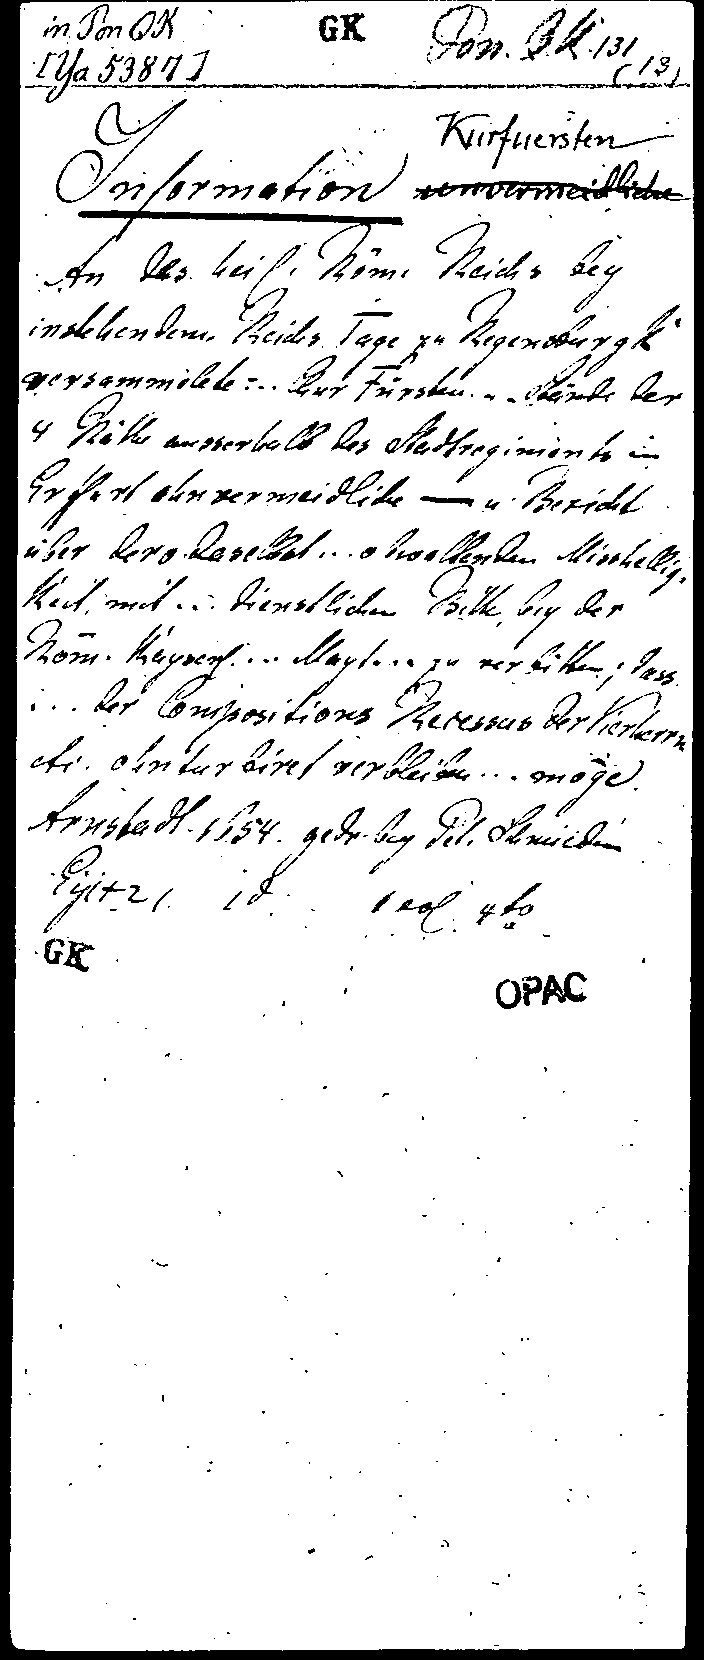 in Pon QK GK Pon. QK. 131
[Ya 5387] (13)
Kurfuersten
Information unvermeidliche
An des heil. Röm. Reichs bey
instehendem Reichs Tage zu Regensburgk
versammlete ... Chur Fürsten ... Stände der
4 Räthe ausserhalb des Stadtregiments in
Erffurt ohnvermeidliche — u. Bericht
über dero daselbst ... obwaltenden Misshellig-
keit, mit ... dienstlichen Bitte, bey der
Röm. Kayserl. ... Mayt. ... zu verbitten; dass
... der Compositions Recessus der Vierherrn
etc. ohnturbiret verbleiben ... möge.
Arnstadt. 1654. gedr. bey Pet. Schmieden
4to
GK
OPAC